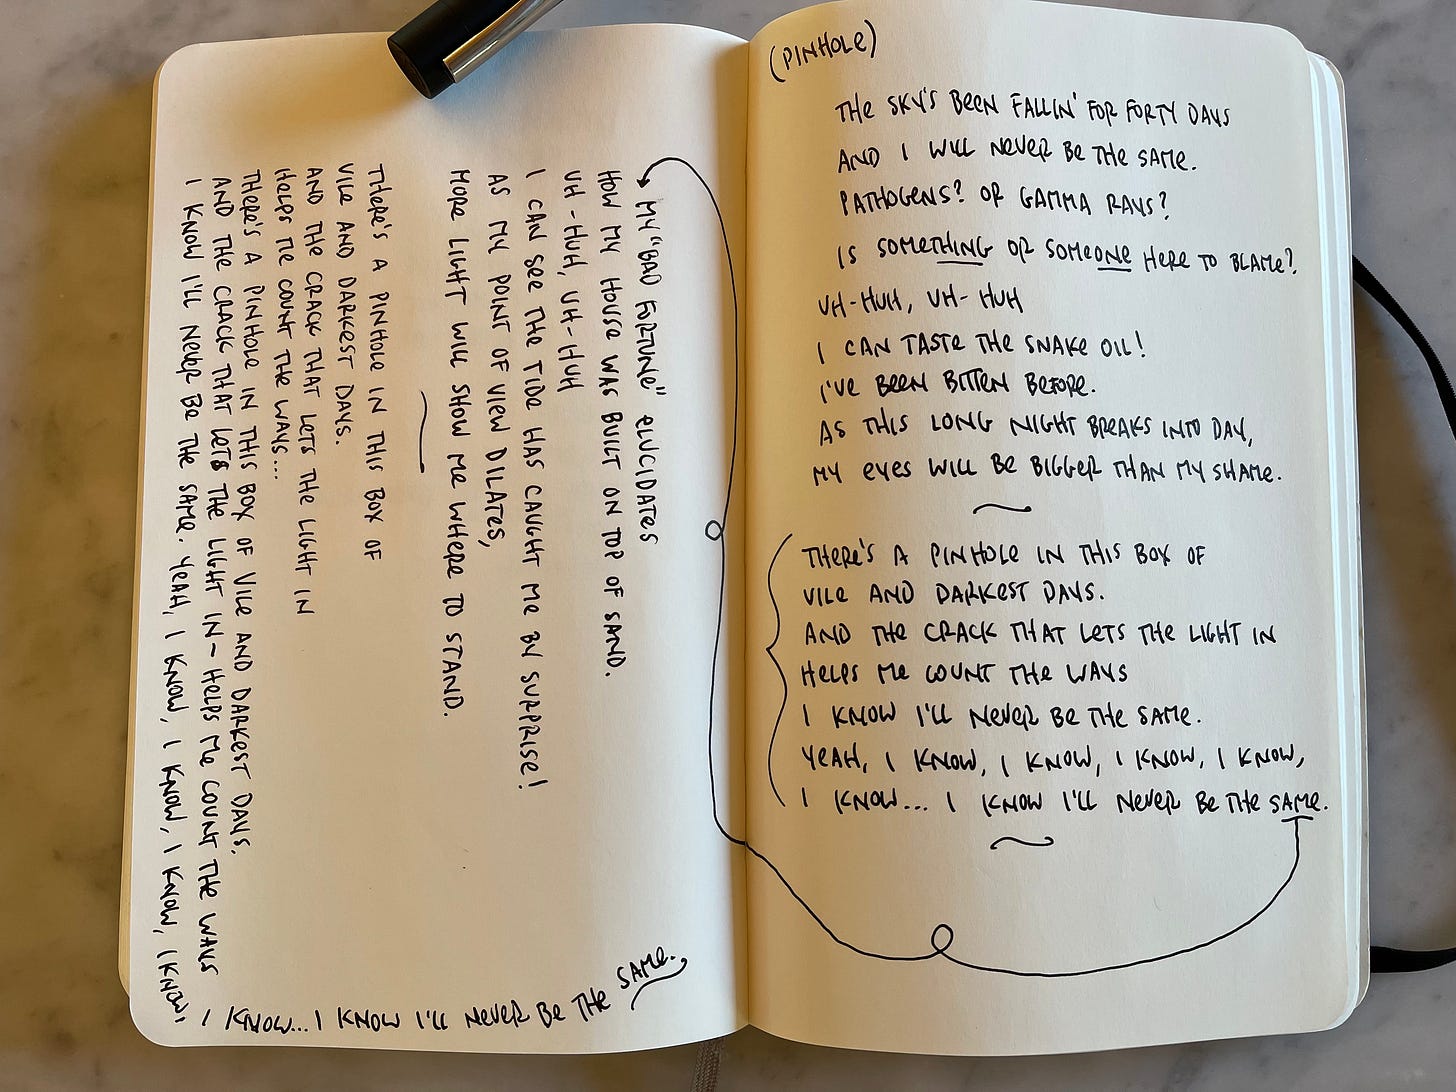 (PINHOLE)
THE SKY'S BEEN FALLIN' FOR FORTY DAYS
AND I WILL NEVER BE THE SAME.
PATHOGENS? OR GAMMA RAYS?
IS SOMETHING OR SOMEONE HERE TO BLAME?
UH-HUH, UH-HUH
I CAN TASTE THE SNAKE OIL!
I'VE BEEN BITTEN BEFORE.
AS THIS LONG NIGHT BREAKS INTO DAY,
MY EYES WILL BE BIGGER THAN MY SHAME.
THERE'S A PINHOLE IN THIS BOX OF
VILE AND DARKEST DAYS.
AND THE CRACK THAT LETS THE LIGHT IN
HELPS ME COUNT THE WAYS
I KNOW I'LL NEVER BE THE SAME.
YEAH, I KNOW, I KNOW, I KNOW, I KNOW,
I KNOW... I KNOW I'LL NEVER BE THE SAME.
MY "BAD FORTUNE" ELUCIDATES
HOW MY HOUSE WAS BUILT ON TOP OF SAND.
UH-HUH, UH-HUH
I CAN SEE THE TIDE HAS CAUGHT ME BY SURPRISE!
AS MY POINT OF VIEW DILATES,
MORE LIGHT WILL SHOW ME WHERE TO STAND.
THERE'S A PINHOLE IN THIS BOX OF
VILE AND DARKEST DAYS.
AND THE CRACK THAT LETS THE LIGHT IN
HELPS ME COUNT THE WAYS...
THERE'S A PINHOLE IN THIS BOX OF VILE AND DARKEST DAYS.
AND THE CRACK THAT LETS THE LIGHT IN - HELPS ME COUNT THE WAYS
I KNOW I'LL NEVER BE THE SAME. YEAH, I KNOW, I KNOW, I KNOW, I KNOW,
I KNOW... I KNOW I'LL NEVER BE THE SAME.